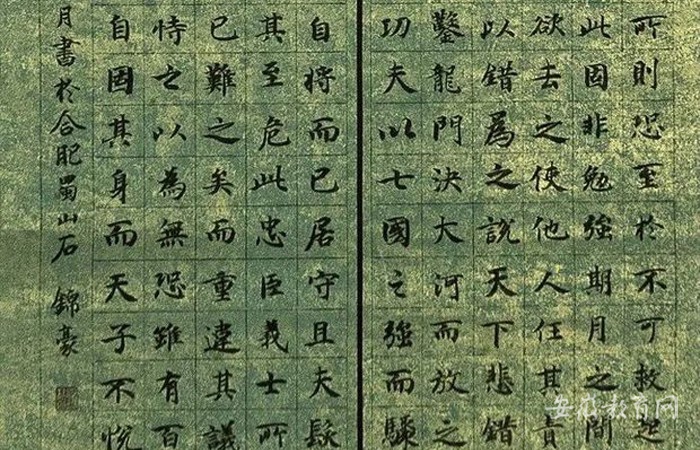 所則恐至於不可救起
此固非勉強期月之間
欲去之使他人任其責
以錯爲之說天下悲錯
鑿龍門決大河而放之
功夫以七國之強而驟
自將而已居守且夫發
其至危此忠臣義士所
已難之矣而重違其議
恃之以為無恐雖有百
自固其身而天子不悅
月書於合肥蜀山石 錦豪
安徽教育网